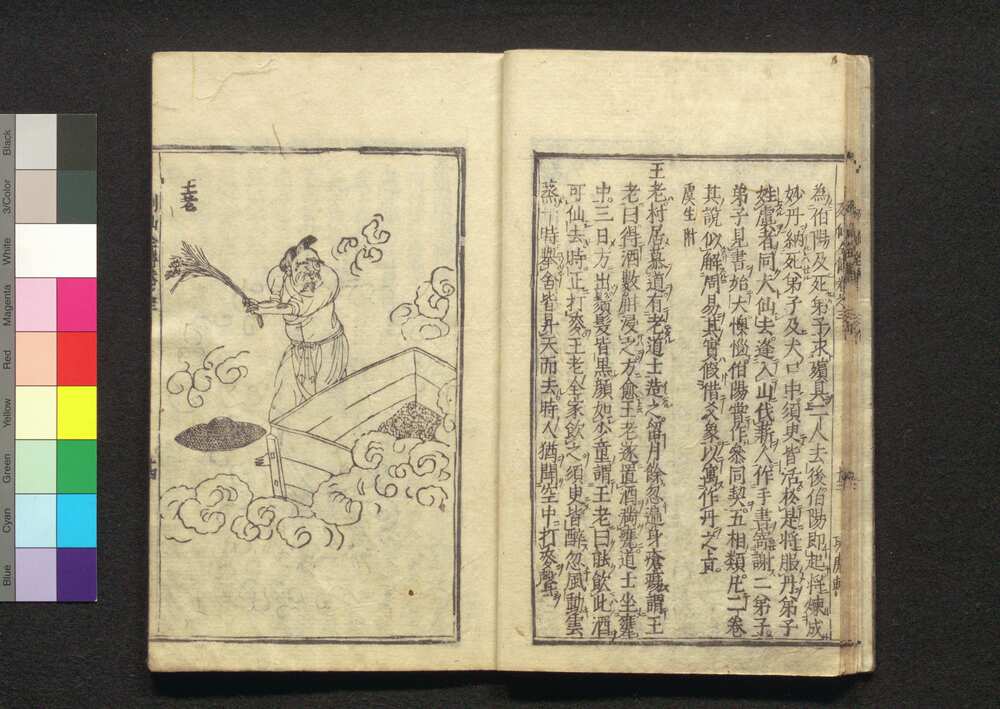 為伯陽及死弟子求殯具二人去後伯陽即起将煉成
妙丹納死弟子及犬口中須臾皆活於是将服丹弟子
姓虞者同犬仙去逢入山伐薪人作手書寄謝二弟子
弟子見書始大懊惱伯陽嘗作參同契五相類凡二卷
其說似解周易其實假借爻象以寓作丹之旨
虞生附
王老村居慕道有老道士造之留月餘忽遍身瘡瘍謂王
老曰得酒數斛浸之方愈王老遂置酒滿甕道士坐甕
中三日方出鬚髮皆黒顔如少童謂王老曰能飲此酒
可仙去時正打麥王老全家飲之須臾皆醉忽風動雲
蒸一時舉舍皆昇天而去時人猶聞空中打麥聲
王老
Black
3/Color
White
Magenta
Red
Yellow
Green
Cyan
Blue